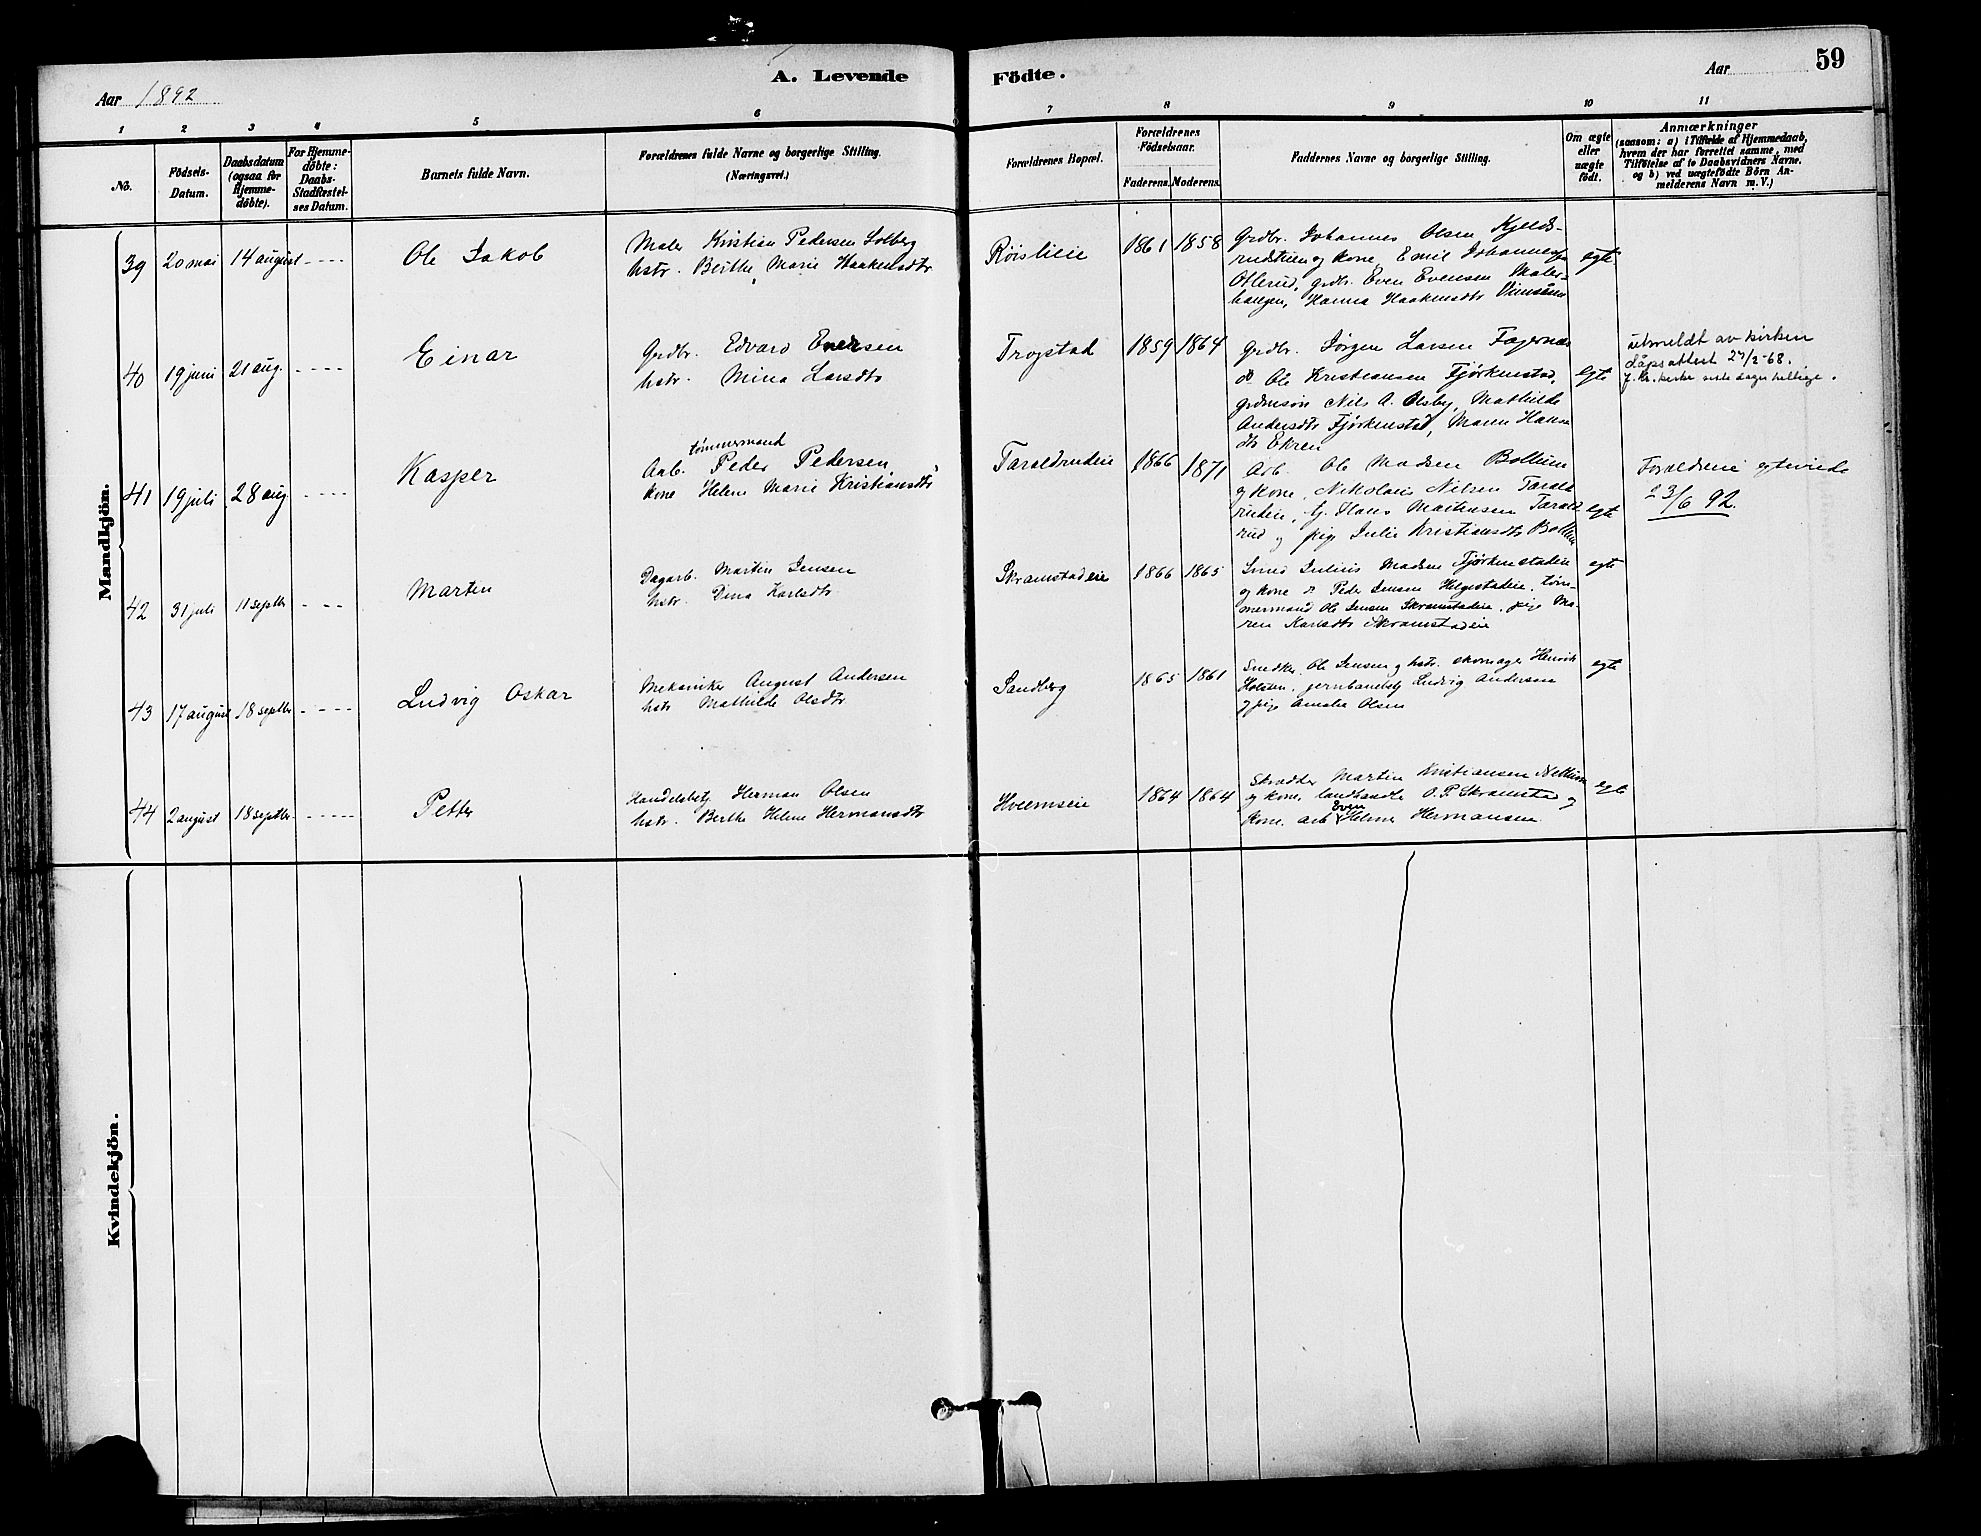 A. Levende Födte.
Aar 1892
Aar 59
1 2 3 4 5 6 7 8 9 10 11
No.
Födsels-Datum.
Daabsdatum (ogsaa for Hjemme-döbte).
For Hjemme-döbte: Daabs-Stadfæstel-ses Datum.
Barnets fulde Navn.
Forældrenes fulde Navne og borgerlige Stilling.
(Næringsvei.)
Forældrenes Bopæl.
Forældrenes Födselsaar.
Faderens. Moderens.
Faddernes Navne og borgerlige Stilling.
Om ægte eller uægte födt.
Anmærkninger
(saasom: a) i Tilfælde af Hjemmedaab,
hvem der har forrettet samme, med
Tilföielse af to Daabsvidners Navne.
og b) ved uægtefödte Börn An-
melderens Navn m. V.)
Mandkjön.
39 20 mai 14 august - - - -
Ole Jakob
Maler Kristian Pedersen Solberg
hstr. Berthe Marie Haakensdtr
Röislieie
1861 1858
Grdbr. Johannes Olsen Kjelds-
rudstuen og kone, Emil Johannessen
Otlerud, grdbr. Even Evensen Maler-
haugen, Hanna Haakensdtr
egte
40 19 juni 21 aug. - - - -
Einar
Grdbr. Edvard Evensen
hstr. Mina Larsdtr
Trogstad
1859 1864
Grdbr. Jörgen Larsen Fagernæs
do Ole Kristiansen Fjörkenstad,
grdmsön Nils A. Olsby, Mathilde
Andersdtr Fjörkenstad, Maren Hans-
dtr Ekren
egte
utmeldt av kirken
Dåpsattest 27/2-68.
J. Kr. kirke siste dagers hellige.
41 19 juli 28 aug - - - -
Kasper
tømmermand
Arb. Peder Pedersen,
kone Helene Marie Kristiansdtr
Taraldrudeie
1866 1871
Arb. Ole Madsen Bollum
og kone, Nikolai Nilsen Tarald-
rudeie, tj. Hans Mathisen Tarald-
rud og pige Julie Kristiansdtr Bollum
egte
Forældrene egteviede
23/6 92.
42 31 juli 11 septbr - - - -
Martin
Dagarb. Martin Jensen
hstr. Dina Karlsdtr
Skramstadeie
1866 1865
Smed Julius Madsen Fjörkenstadeie
og kone, Peder Jensen Helgestadeie, töm-
mermand Ole Jensen Skramstadeie, pige Ma-
ren Karlsdtr Skramstadeie
egte
43 17 august 18 septbr - - - -
Ludvig Oskar
Mekaniker August Andersen
hstr Mathilde Olsdtr
Sandberg
1865 1861
Snedker Ole Jensen og hstr. skomager Henrik
Holsten, jernbanebetj Ludvig Andersen
og pige Amalie Olsen
egte
44 2 august 18 septbr. - - - - -
Petter
Handelsbetj Herman Olsen
hstr. Berthe Helene Hermansdtr
Hveemseie
1864 1864
Skrædder Martin Kristiansen Nettum
og kone, landhandler O. P. Skramstad og
kone. arb Even & Helmer Hermansen.
egte
Kvindekjön.